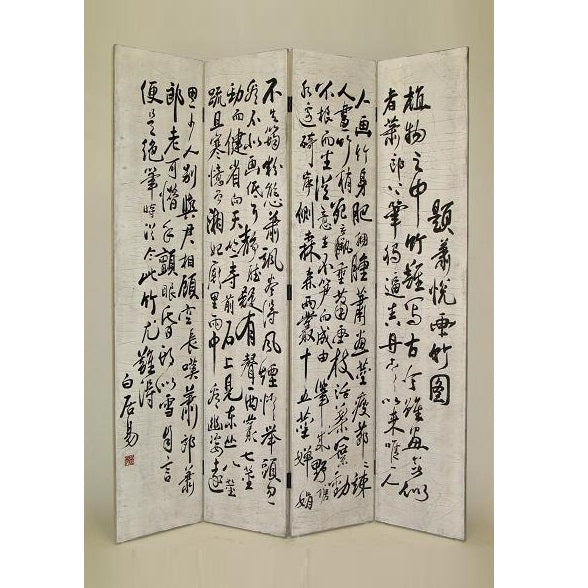 題蕭悅画竹图
植物之中竹難写古今雖画无似
者蕭郎下筆獨逼真丹青以来唯一人
人画竹身肥擁腫蕭画茎瘦節節竦
人畫竹梢死羸垂蕭画枝活葉葉動
不根而生從意生不笋而成由筆成野塘
水邊碕岸側森森兩叢十五莖嬋娟
不失筠粉態蕭颯盡得風煙情舉頭忽
看不似画低耳靜聽疑有聲西叢七莖
勁而健省向天竺寺前石上見東丛八莖
疏且寒憶曾湘妃廟里雨中看幽姿遠
思少人别與君相顧空長嘆蕭郎蕭
郎老可惜手顫眼昏頭似雪自言
便是絕筆時從今此竹尤難得
白居易